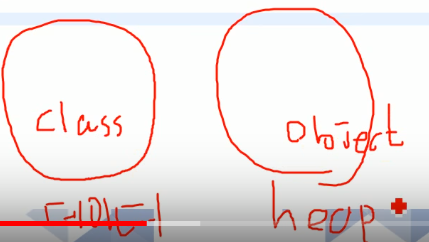 class
object
heap